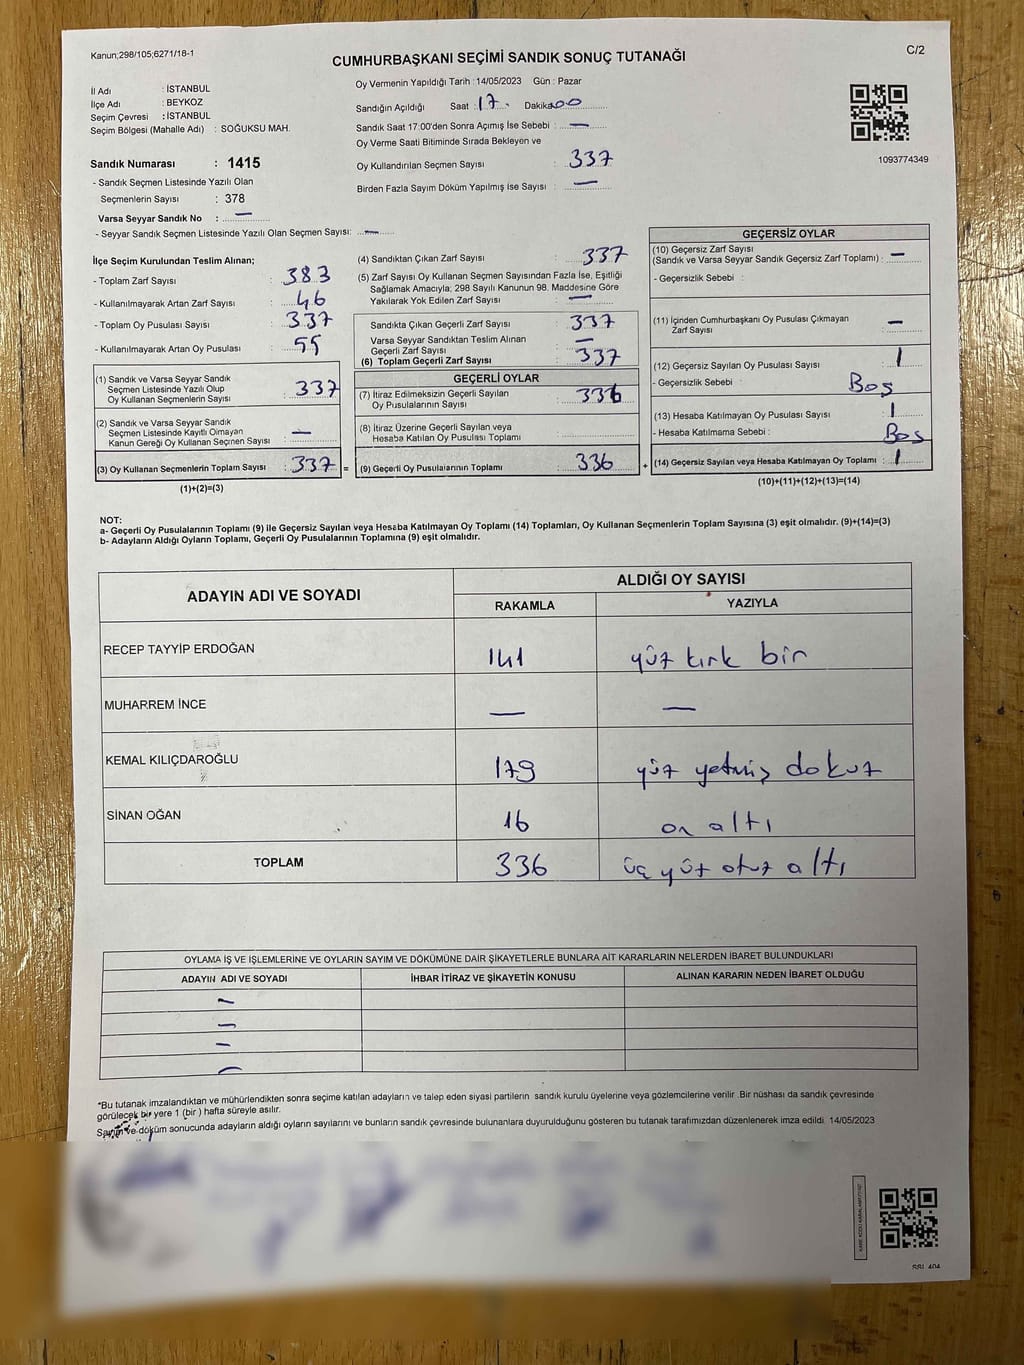 Kanun;298/105;6271/18-1
C/2
CUMHURBAŞKANI SEÇİMİ SANDIK SONUÇ TUTANAĞI
İl Adı : İSTANBUL
İlçe Adı : BEYKOZ
Seçim Çevresi : İSTANBUL
Seçim Bölgesi (Mahalle Adı) : SOĞUKSU MAH.
Sandık Numarası : 1415
- Sandık Seçmen Listesinde Yazılı Olan
Seçmenlerin Sayısı : 378
Varsa Seyyar Sandık No : —
- Seyyar Sandık Seçmen Listesinde Yazılı Olan Seçmen Sayısı: —
Oy Vermenin Yapıldığı Tarih : 14/05/2023 Gün : Pazar
Sandığın Açıldığı Saat : 17. Dakika 00
Sandık Saat 17:00'den Sonra Açımış İse Sebebi : —
Oy Verme Saati Bitiminde Sırada Bekleyen ve
Oy Kullandırılan Seçmen Sayısı : 337
Birden Fazla Sayım Döküm Yapılmış İse Sayısı : —
1093774349
İlçe Seçim Kurulundan Teslim Alınan;
- Toplam Zarf Sayısı : 383
- Kullanılmayarak Artan Zarf Sayısı : 46
- Toplam Oy Pusulası Sayısı : 337
- Kullanılmayarak Artan Oy Pusulası : 55
(1) Sandık ve Varsa Seyyar Sandık
Seçmen Listesinde Yazılı Olup
Oy Kullanan Seçmenlerin Sayısı : 337
(2) Sandık ve Varsa Seyyar Sandık
Seçmen Listesinde Kayıtlı Olmayan
Kanun Gereği Oy Kullanan Seçmen Sayısı : —
(3) Oy Kullanan Seçmenlerin Toplam Sayısı : 337 =
(1)+(2)=(3)
(4) Sandıktan Çıkan Zarf Sayısı : 337
(5) Zarf Sayısı Oy Kullanan Seçmen Sayısından Fazla İse, Eşitliği
Sağlamak Amacıyla; 298 Sayılı Kanunun 98. Maddesine Göre
Yakılarak Yok Edilen Zarf Sayısı : —
Sandıkta Çıkan Geçerli Zarf Sayısı : 337
Varsa Seyyar Sandıktan Teslim Alınan
Geçerli Zarf Sayısı : —
(6) Toplam Geçerli Zarf Sayısı : 337
GEÇERLİ OYLAR
(7) İtiraz Edilmeksizin Geçerli Sayılan
Oy Pusulalarının Sayısı : 336
(8) İtiraz Üzerine Geçerli Sayılan veya
Hesaba Katılan Oy Pusulası Toplamı :
(9) Geçerli Oy Pusulalarının Toplamı : 336 +
GEÇERSİZ OYLAR
(10) Geçersiz Zarf Sayısı
(Sandık ve Varsa Seyyar Sandık Geçersiz Zarf Toplamı) : —
- Geçersizlik Sebebi :
(11) İçinden Cumhurbaşkanı Oy Pusulası Çıkmayan
Zarf Sayısı : —
(12) Geçersiz Sayılan Oy Pusulası Sayısı : 1
- Geçersizlik Sebebi : Boş
(13) Hesaba Katılmayan Oy Pusulası Sayısı : 1
- Hesaba Katılmama Sebebi : Boş
(14) Geçersiz Sayılan veya Hesaba Katılmayan Oy Toplamı : 1
(10)+(11)+(12)+(13)=(14)
NOT:
a- Geçerli Oy Pusulalarının Toplamı (9) ile Geçersiz Sayılan veya Hesaba Katılmayan Oy Toplamı (14) Toplamları, Oy Kullanan Seçmenlerin Toplam Sayısına (3) eşit olmalıdır. (9)+(14)=(3)
b- Adayların Aldığı Oyların Toplamı, Geçerli Oy Pusulalarının Toplamına (9) eşit olmalıdır.
ADAYIN ADI VE SOYADI
ALDIĞI OY SAYISI
RAKAMLA YAZIYLA
RECEP TAYYİP ERDOĞAN 141 yüz kırk bir
MUHARREM İNCE — —
KEMAL KILIÇDAROĞLU 179 yüz yetmiş dokuz
SİNAN OĞAN 16 on altı
TOPLAM 336 üç yüz otuz altı
OYLAMA İŞ VE İŞLEMLERİNE VE OYLARIN SAYIM VE DÖKÜMÜNE DAİR ŞİKAYETLERLE BUNLARA AİT KARARLARIN NELERDEN İBARET BULUNDUKLARI
ADAYIN ADI VE SOYADI İHBAR İTİRAZ VE ŞİKAYETİN KONUSU ALINAN KARARIN NEDEN İBARET OLDUĞU
—
—
—
—
*Bu tutanak imzalandıktan ve mühürlendikten sonra seçime katılan adayların ve talep eden siyasi partilerin sandık kurulu üyelerine veya gözlemcilerine verilir .Bir nüshası da sandık çevresinde
görülecek bir yere 1 (bir ) hafta süreyle asılır.
Sayım ve döküm sonucunda adayların aldığı oyların sayılarını ve bunların sandık çevresinde bulunanlara duyurulduğunu gösteren bu tutanak tarafımızdan düzenlenerek imza edildi. 14/05/2023